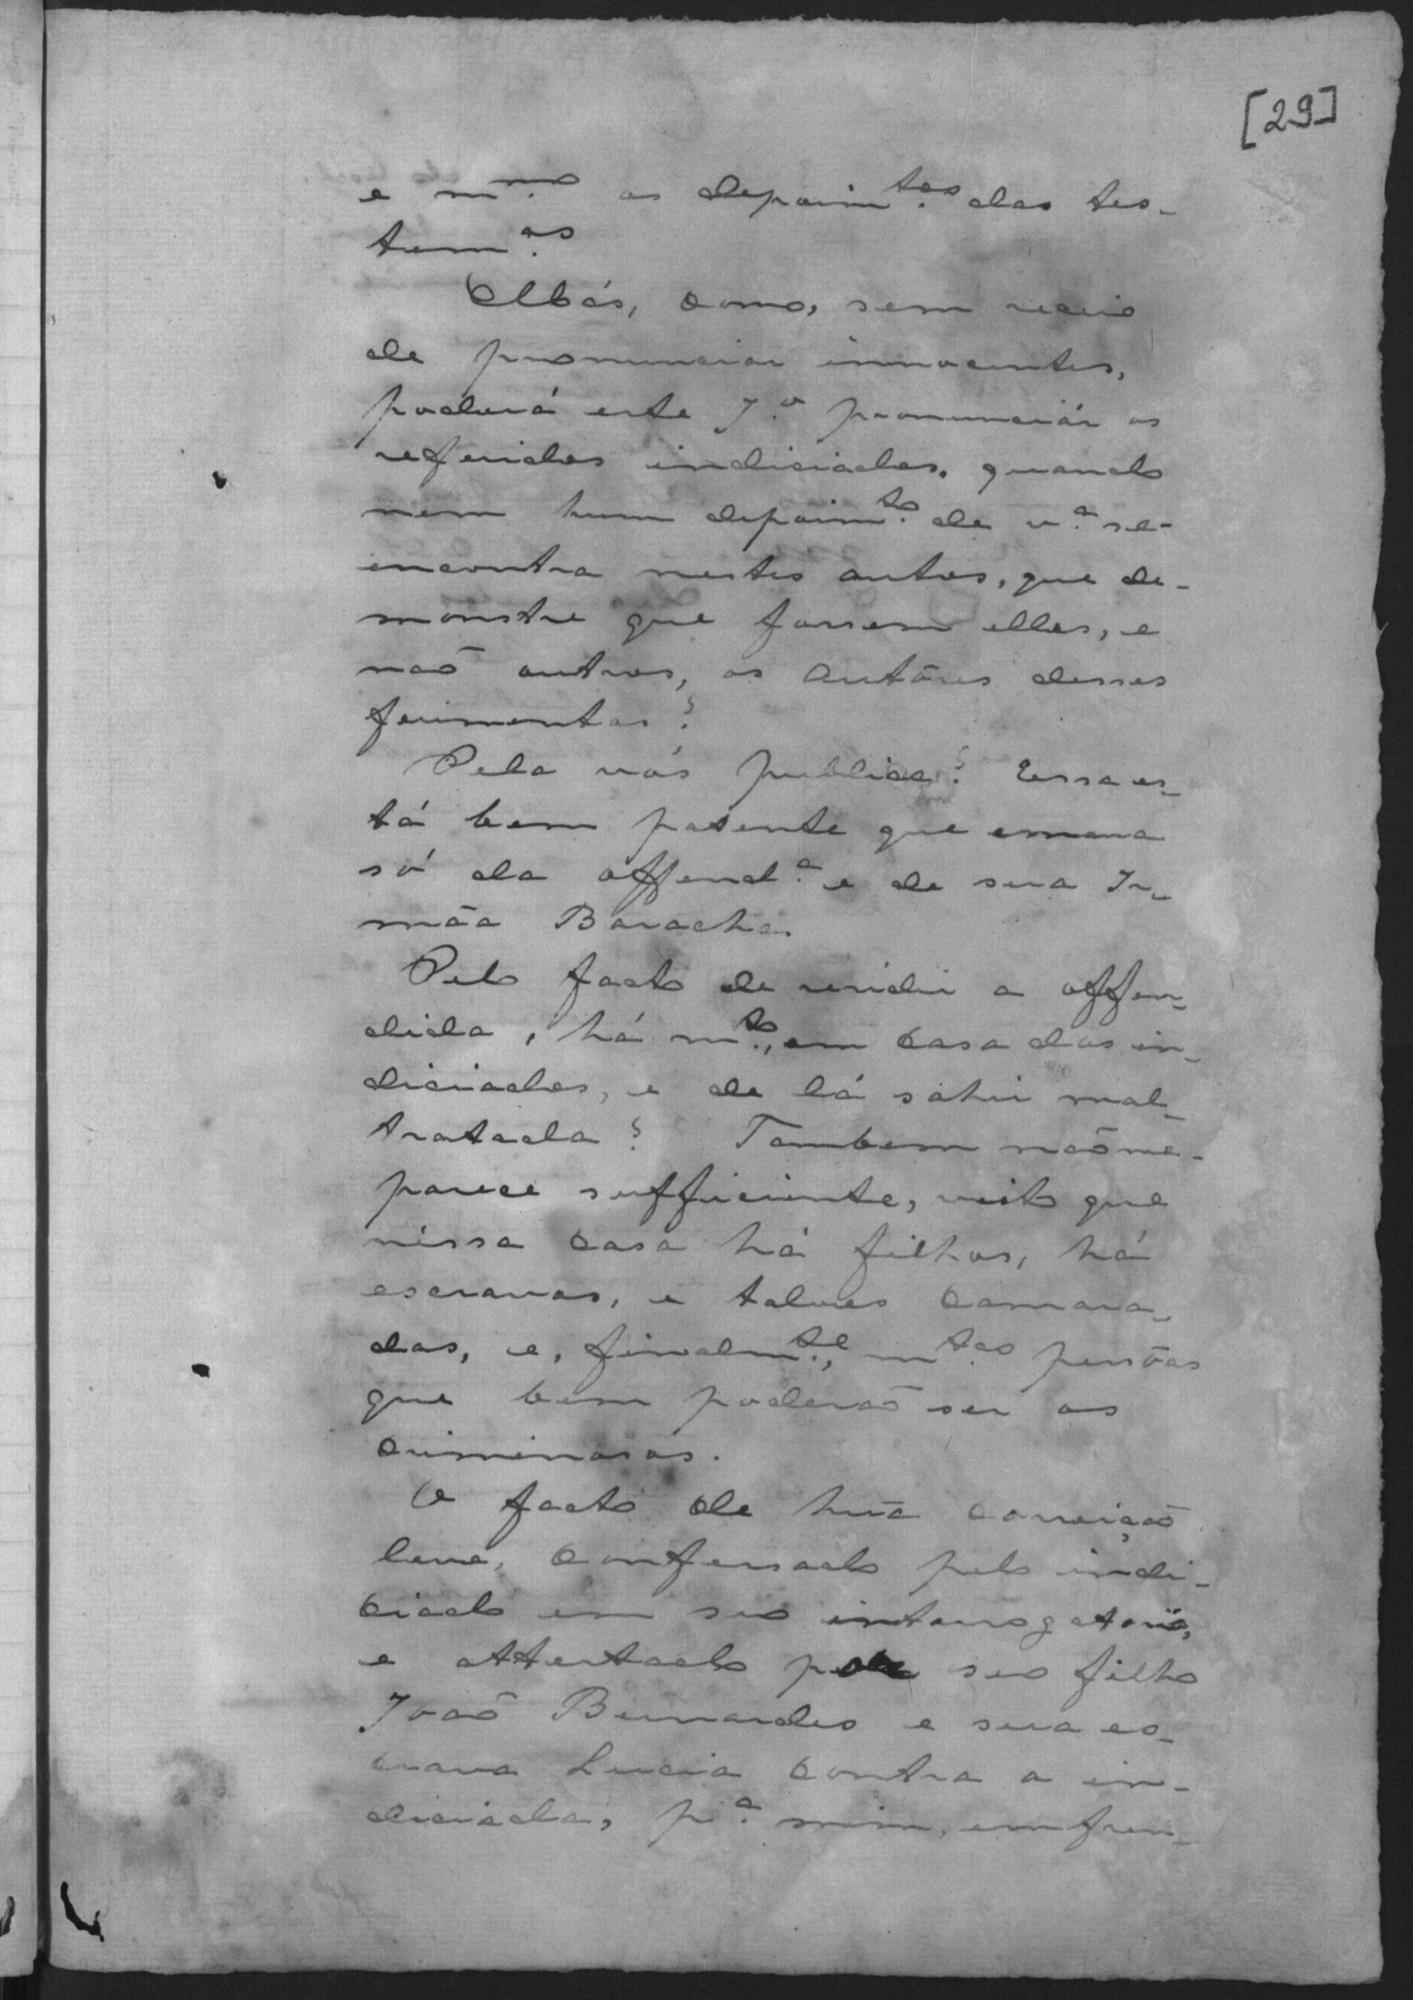 [29]
e m.mo os depoim.tos das tes-
tem.as
Alhás, como, sem receio
de pronunciar innocentes,
poderá este J.o pronunciár os
referidos indiciados, quando
nem hum depoim.to de v.a se-
encontra nestes autos, que de-
monstre que forsem elles, e
naõ outros, os autõres desses
ferimentos?
Pela vós publica? Essa es-
tá bem patente que emana
só da offend.a e de sua Ir-
mãa Baracha.
Pelo facto de residir a offen-
dida, há m.to, em casa dos in-
diciados, e de lá sahir mal-
tratada? Tambem naõ me-
parece sufficiente, visto que
nessa casa há filhos, há
escravas, e talves camara-
das, e, finalm.te, m.tas pessõas
que bem poderaõ ser os
criminosos.
O facto de huã correiçaõ
leve, confessado pelo indi-
ciado em seo interrogatorio,
e attestado por seo filho
Joaõ Bernardes e sua es-
crava Lucia contra a in-
diciada, p.a mim, em fren-